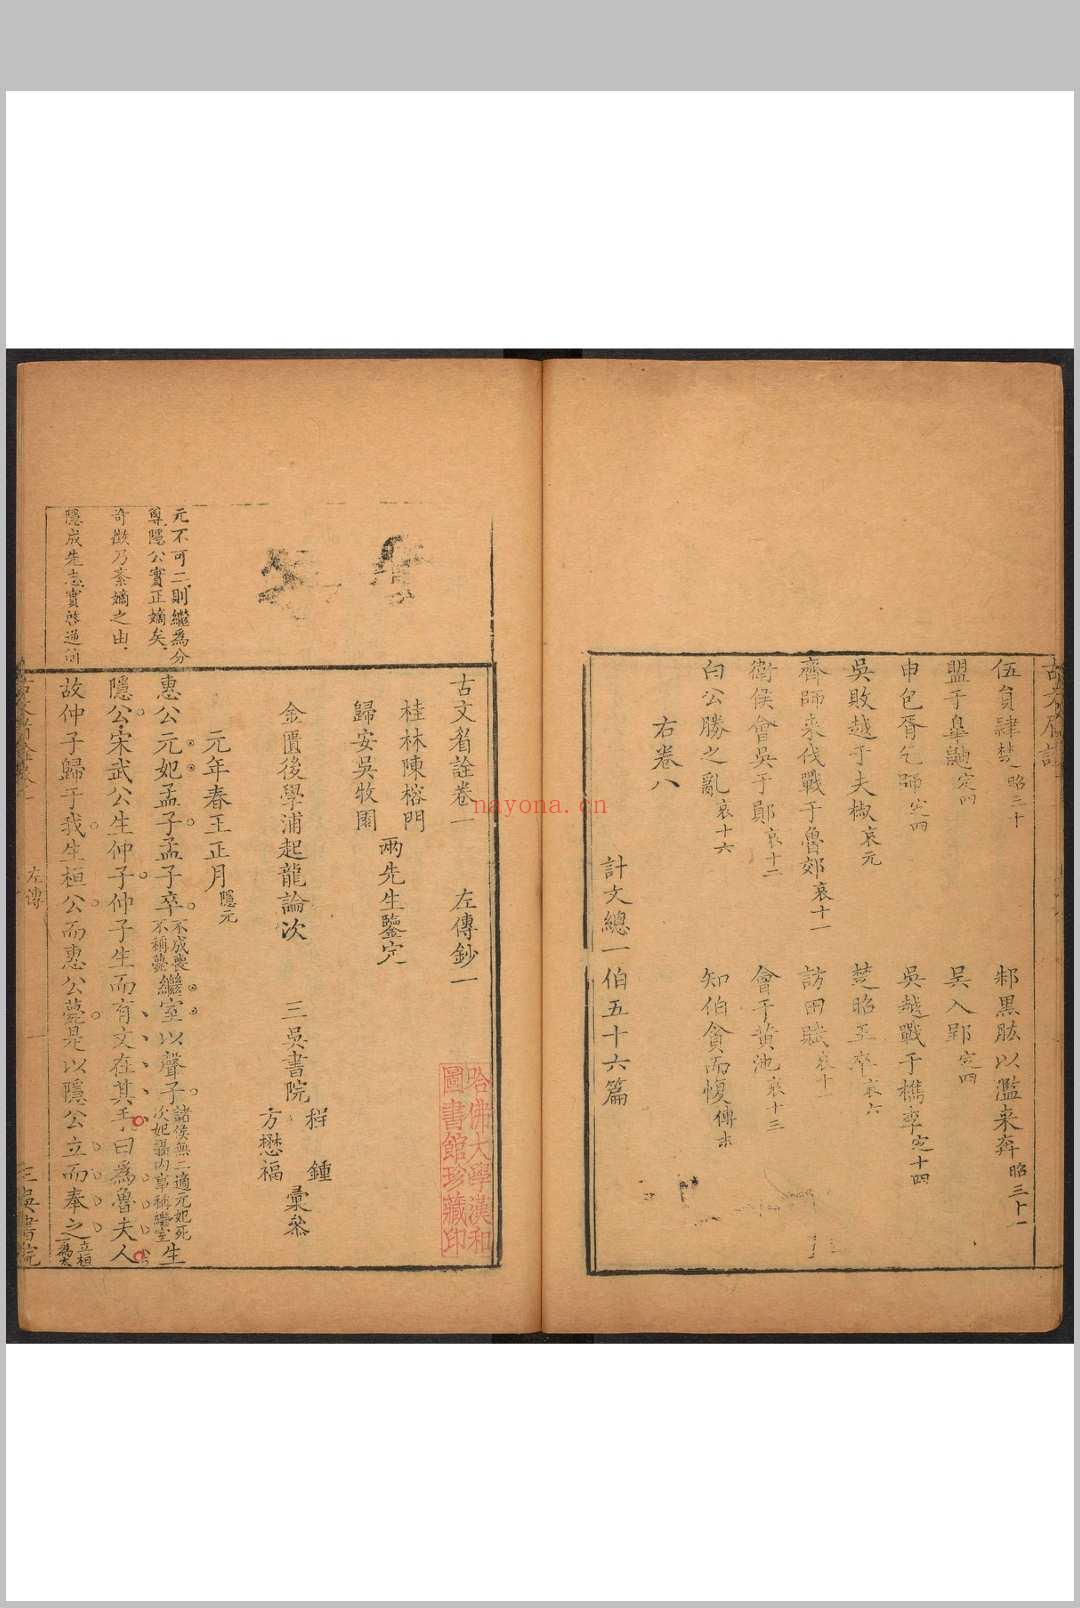 伍員肄楚昭三十
邾黑肱以濫来奔昭三十一
盟于皐鼬定四
吴入郢定四
申包胥乞師定四
吳越戰于檇李定十四
吳敗越于夫椒哀元
楚昭王卒哀六
齊師来伐戰于魯郊哀十一
訪田賦哀十一
衛侯會吴于鄖哀十二
會于黄池哀十三
白公勝之亂哀十六
知伯貪而愎傳末
右卷八
計文總一伯五十六篇
古文眉詮卷一
左傳鈔一
桂林陳榕門
歸安吳牧園
兩先生鑒定
金匱後學浦起龍論次
三吳書院
程鍾
方懋福
彙叅
哈佛大學漢和
圖書館珍藏印
元年春王正月隱元
元不可二則繼為分
尊隱公實正嫡矣
奇徵乃紊嫡之由
隱成先志實啓
惠公元妃孟子孟子卒不成喪不稱薨繼室以聲子諸侯無二適元妃死次妃攝内事稱繼室生
隱公宋武公生仲子仲子生而有文在其手曰為魯夫人
故仲子歸于我生桓公而惠公薨是以隱公立而奉之立桓為太
左傳
一
三吳書院
nayona.cn